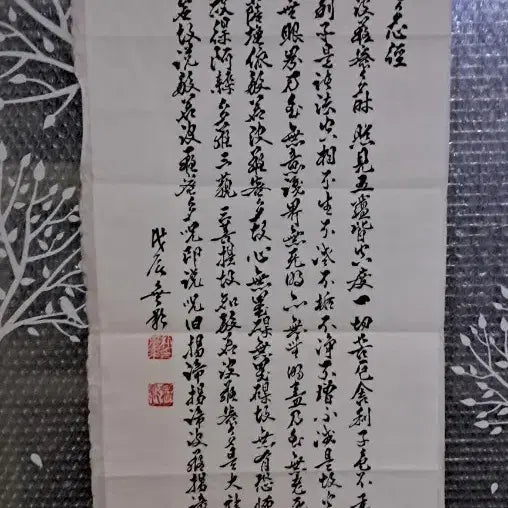 心經
波羅蜜多時照見五蘊皆空度一切苦厄舍利子色不異
利子是諸法空相不生不滅不垢不淨不增不減是故空
無眼界乃至無意識界無無明亦無無明盡乃至無老死
薩埵依般若波羅蜜多故心無罣礙無罣礙故無有恐怖
故得阿耨多羅三藐三菩提故知般若波羅蜜多是大神
故說般若波羅蜜多咒即說咒曰揭諦揭諦波羅揭諦
戊辰